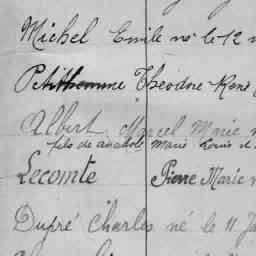 Michel Emile né le 12 n
Petithomme Théodore René
Albert Marcel Marie n
fils de Anatole Marie Louis et
Lecomte Pierre Marie n
Dupré Charles né le 11 Ja